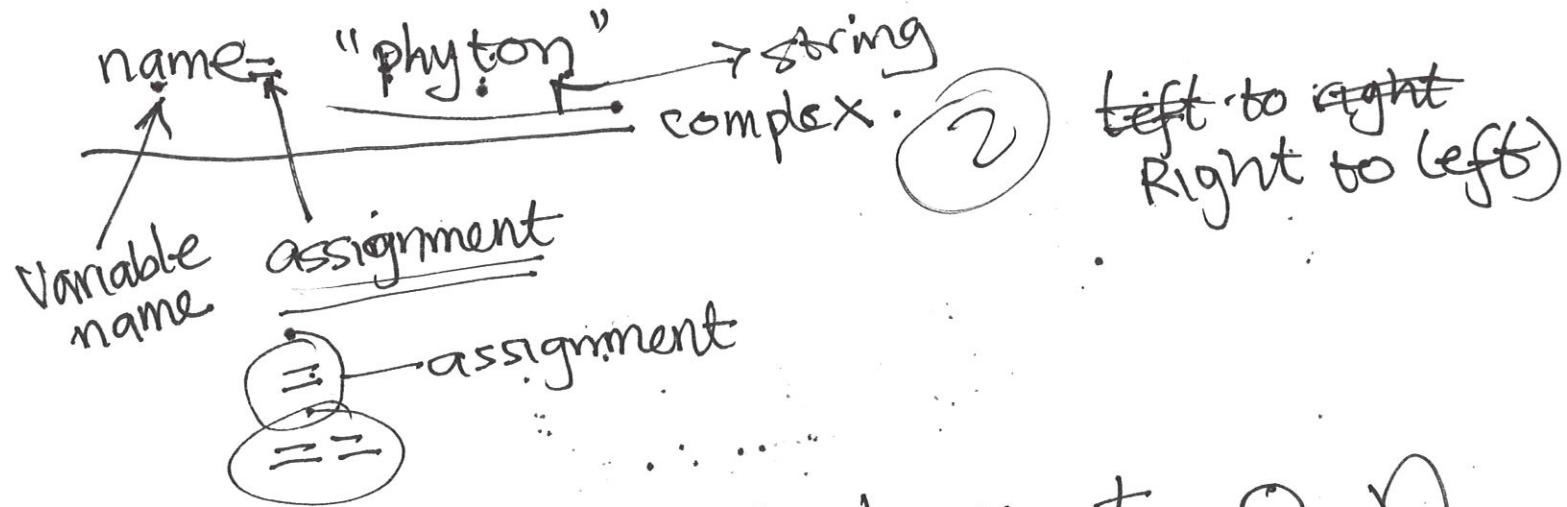 name= "phyton" string
complex. 2
Left to right
Right to left)
Variable
name
assignment
= assignment
==
t o n